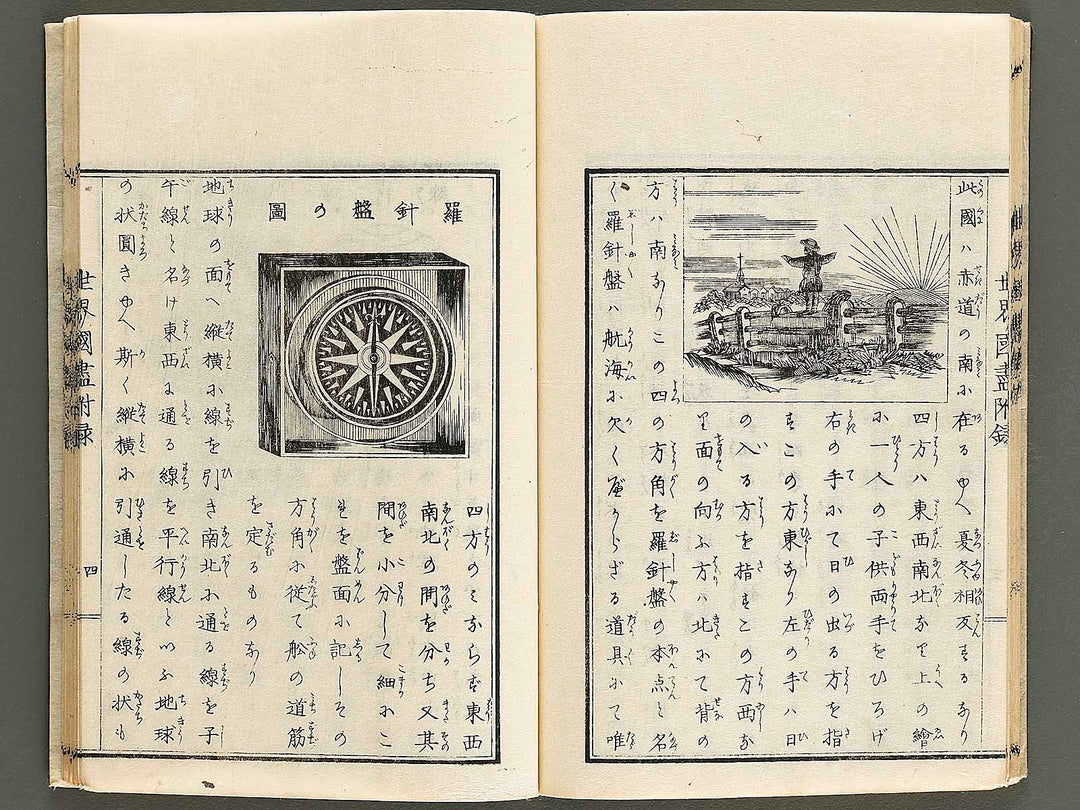 此國ハ赤道の南ふ在るゆへ夏冬相反するなり
四方ハ東西南北なり上の繪
ふ一人の子供両手をひろげ
右の手ふて日の出る方を指
すこの方東なり左の手ハ日
の入る方を指すこの方西な
り面の向ふ方ハ北ふて背の
方ハ南なりこの四の方角を羅針盤の本点と名
く羅針盤ハ航海ふ欠く可からざる道具ふて唯
世界國盡附録
羅針盤の圖
四方のミならず東西
南北の間を分ち又其
間を小分して細ふこ
れを盤面ふ記しその
方角ふ従て舩の道筋
を定るものなり
地球の面へ縦横ふ線を引き南北ふ通る線を子
午線と名け東西ふ通る線を平行線といふ地球
の状圓きゆへ斯く縦横ふ引通したる線の状も
世界國盡附録
四